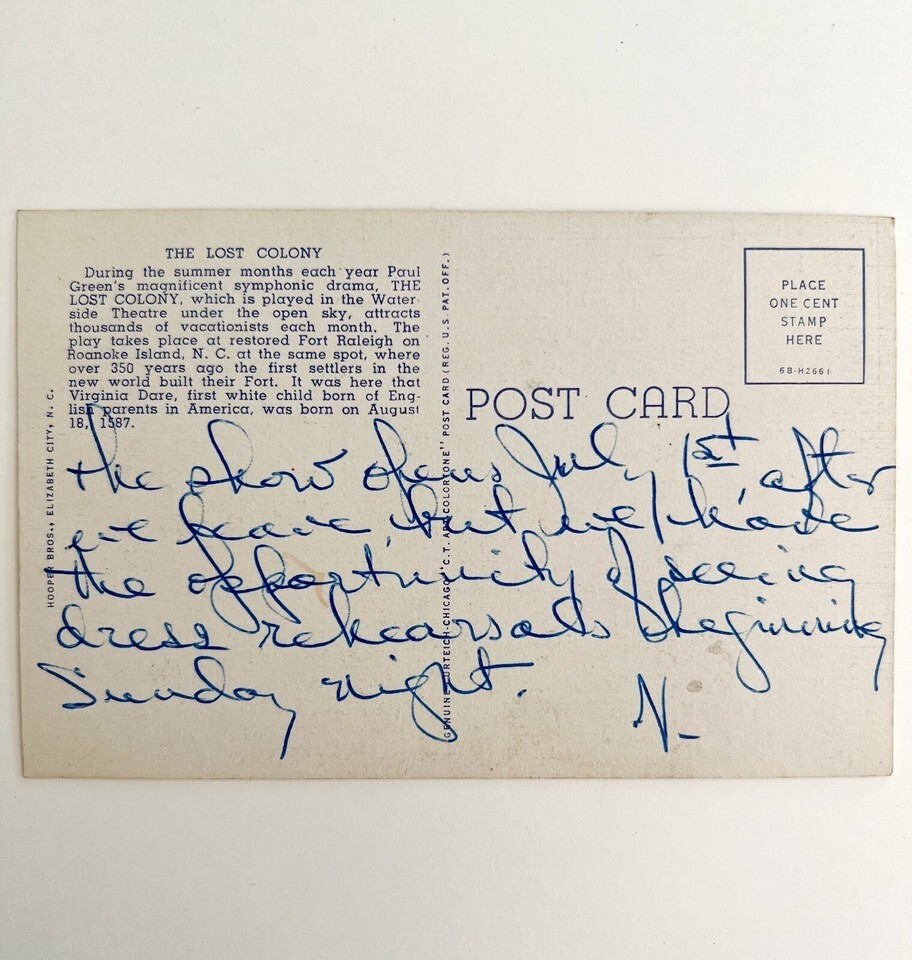 THE LOST COLONY
During the summer months each year Paul
Green's magnificent symphonic drama, THE
LOST COLONY, which is played in the Water-
side Theatre under the open sky, attracts
thousands of vacationists each month. The
play takes place at restored Fort Raleigh on
Roanoke Island, N. C. at the same spot, where
over 350 years ago the first settlers in the
new world built their Fort. It was here that
Virginia Dare, first white child born of Eng-
lish parents in America, was born on August
18, 1587.
HOOPER BROS., ELIZABETH CITY, N. C.
GENUINE CURTEICH-CHICAGO "C.T. ART-COLORTONE" POST CARD (REG. U.S. PAT. OFF.)
POST CARD
PLACE
ONE CENT
STAMP
HERE
6B-H2661
The show opens July 1st, after
we leave, but we'll have
the opportunity of seeing
dress rehearsals beginning
Sunday night. N.